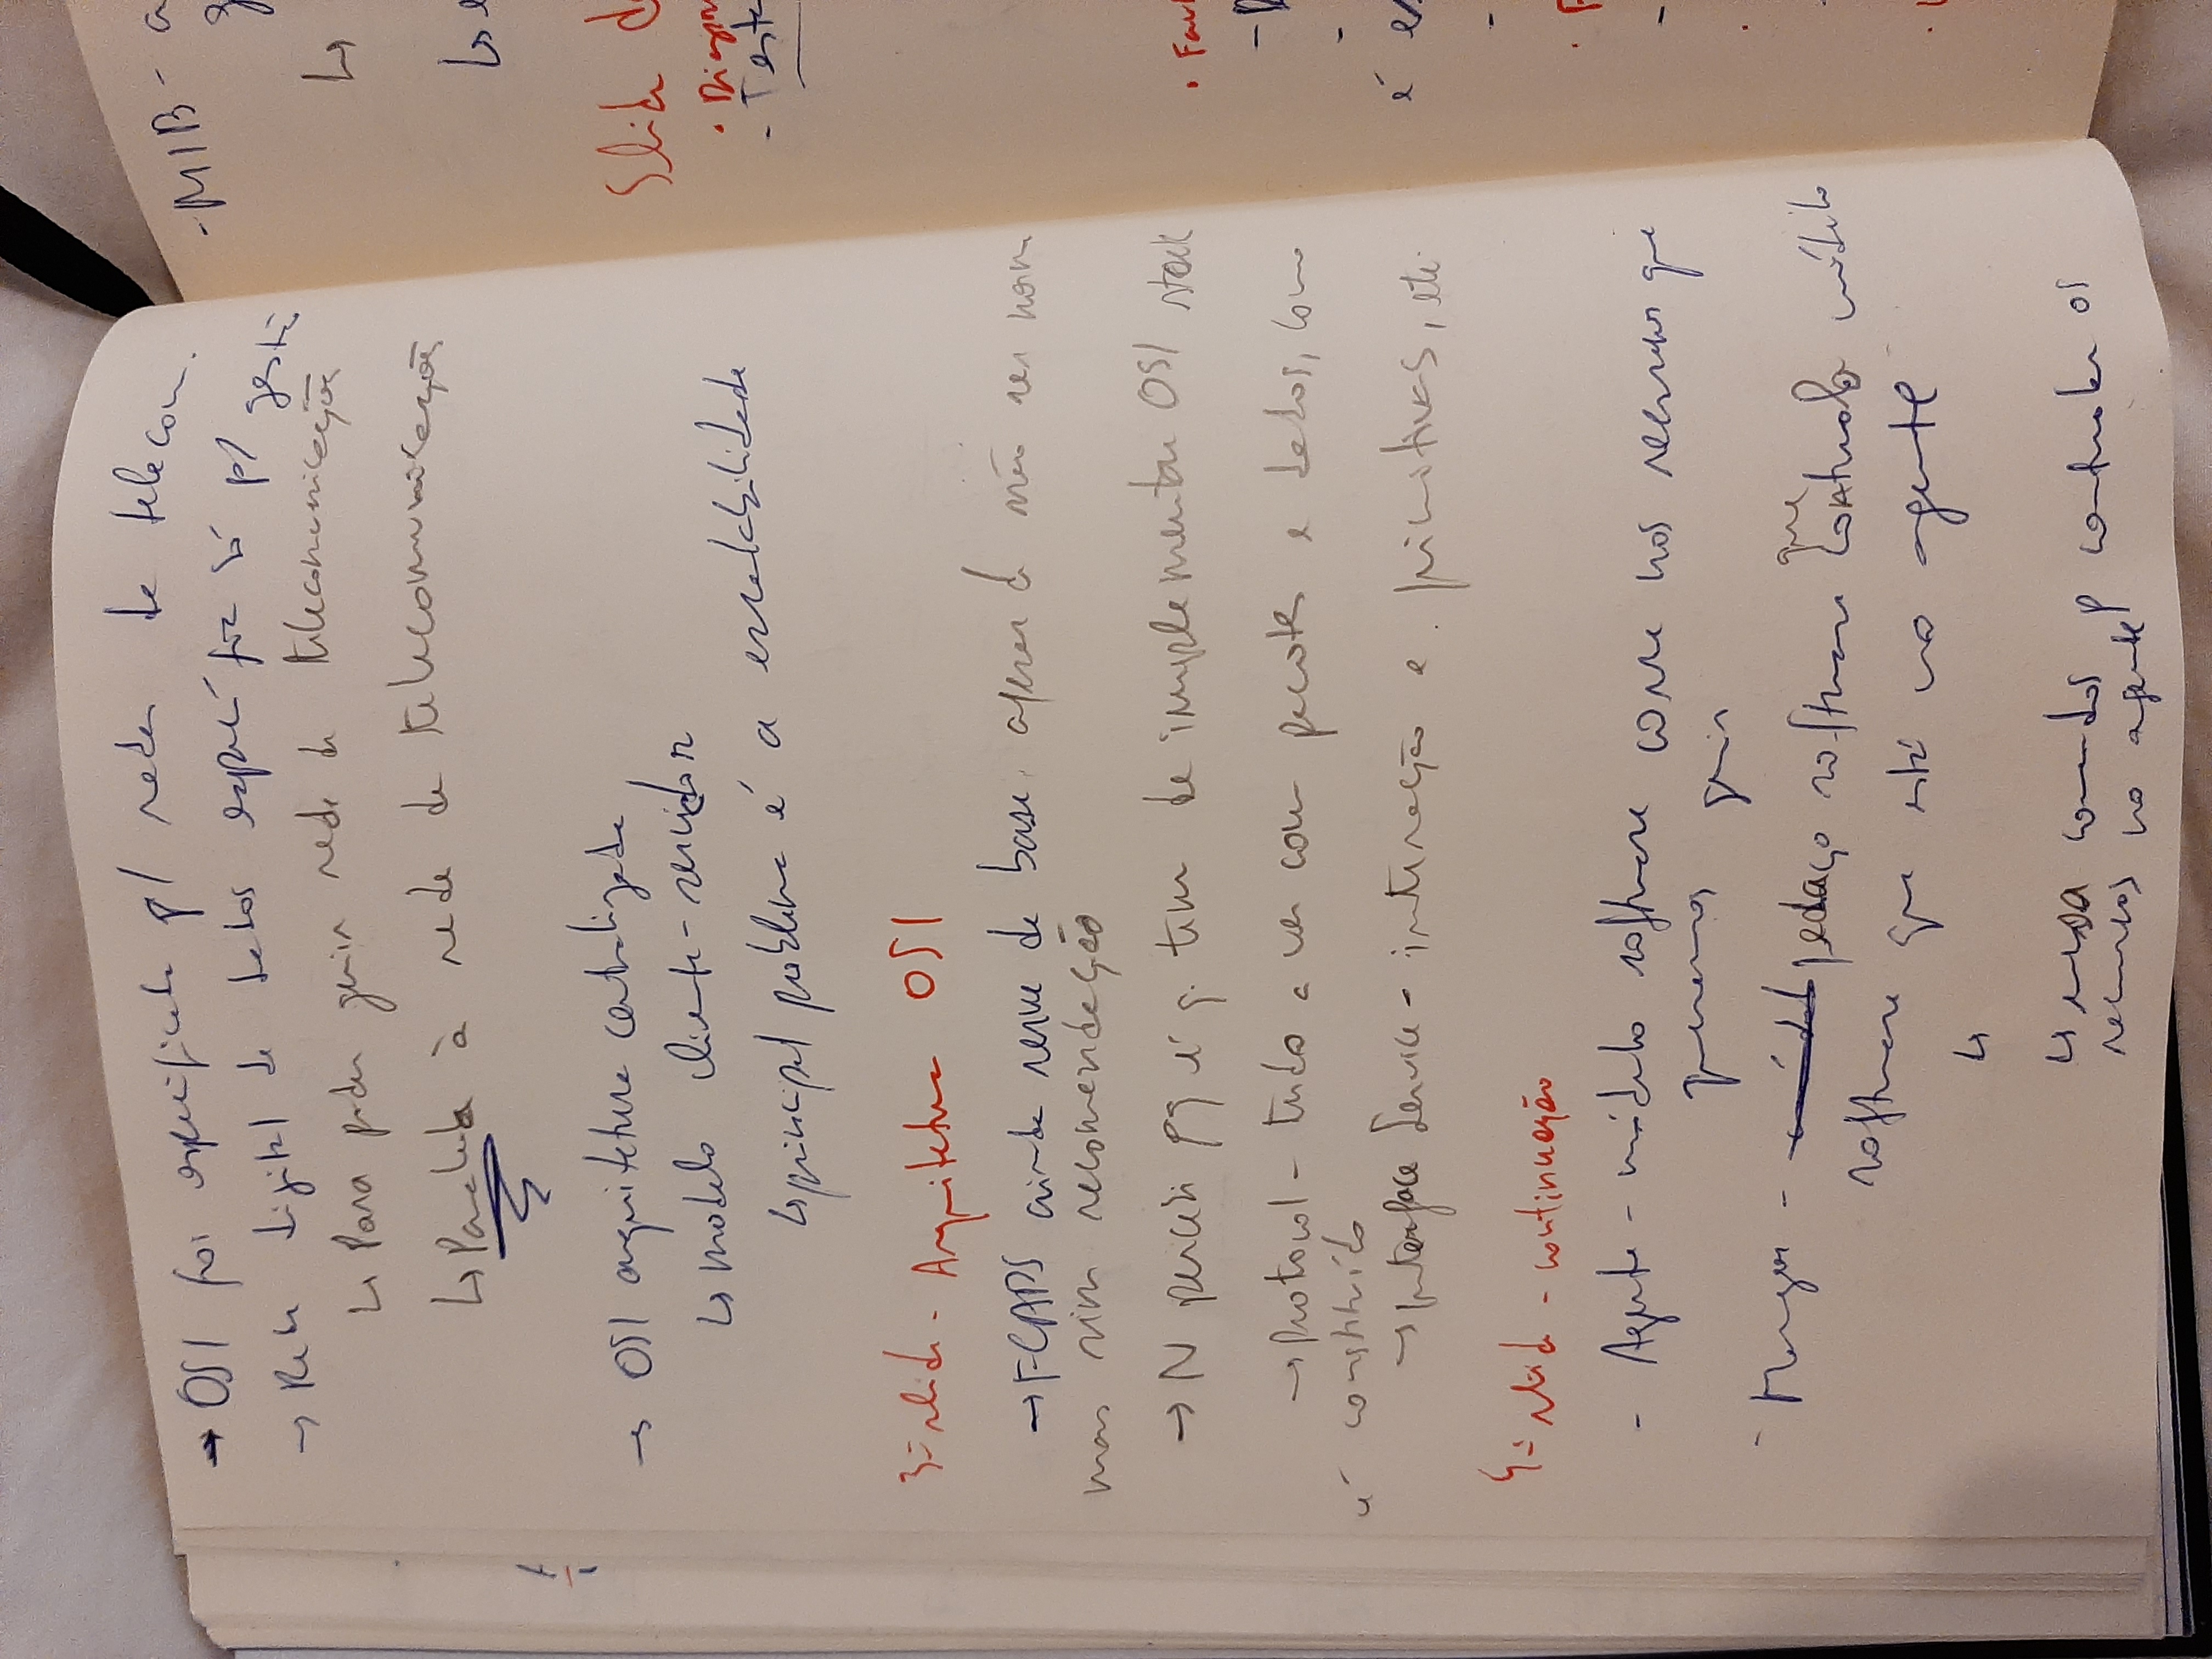 → OSI foi especificada p/ redes de telecom.
→ Rede digital de dados específica só p/ gestão
↳ Para poder gerir rede de telecomunicações
↳ Paralela à rede de telecomunicações
→ OSI arquitetura centralizada
↳ modelo cliente-servidor
↳ principal problema é a escalabilidade
3º slide - Arquitetura OSI
→ FCAPS ainda serve de base apesar de não ser norma
mas sim recomendação
→ N percebi pq é q. tem de implementar OSI stack
→ Protocol - tudo a ver com pacotes e dados, como
é constituído
→ Interface Service - interação e primitivas, etc.
4º slide - continuação
- Agente - módulo software corre nos recursos que
queremos gerir
- Manager - pedaço software que controla módulo
software que está no agente
↳
↳ comandos p controlar os
recursos no agente
- MIB - a
↳
↳ e
Slide d
- Teste
é es